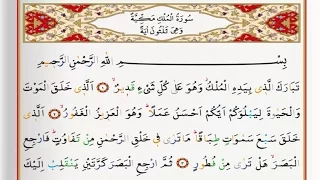 سُورَةُ الْمُلْكِ مَكِّيَّةٌ
وَهِيَ ثَلٰثُونَ اٰيَةً
بِسْمِ اللّٰهِ الرَّحْمٰنِ الرَّحِيمِ
تَبَارَكَ الَّذٖي بِيَدِهِ الْمُلْكُ وَهُوَ عَلٰى كُلِّ شَيْءٍ قَدٖيرٌ ۝ اَلَّذٖي خَلَقَ الْمَوْتَ
وَالْحَيٰوةَ لِيَبْلُوَكُمْ اَيُّكُمْ اَحْسَنُ عَمَلاً وَهُوَ الْعَزٖيزُ الْغَفُورُ ۝ اَلَّذٖي
خَلَقَ سَبْعَ سَمٰوَاتٍ طِبَاقاً مَا تَرٰى فٖي خَلْقِ الرَّحْمٰنِ مِنْ تَفَاوُتٍ فَارْجِعِ
الْبَصَرَ هَلْ تَرٰى مِنْ فُطُورٍ ۝ ثُمَّ ارْجِعِ الْبَصَرَ كَرَّتَيْنِ يَنْقَلِبْ اِلَيْكَ